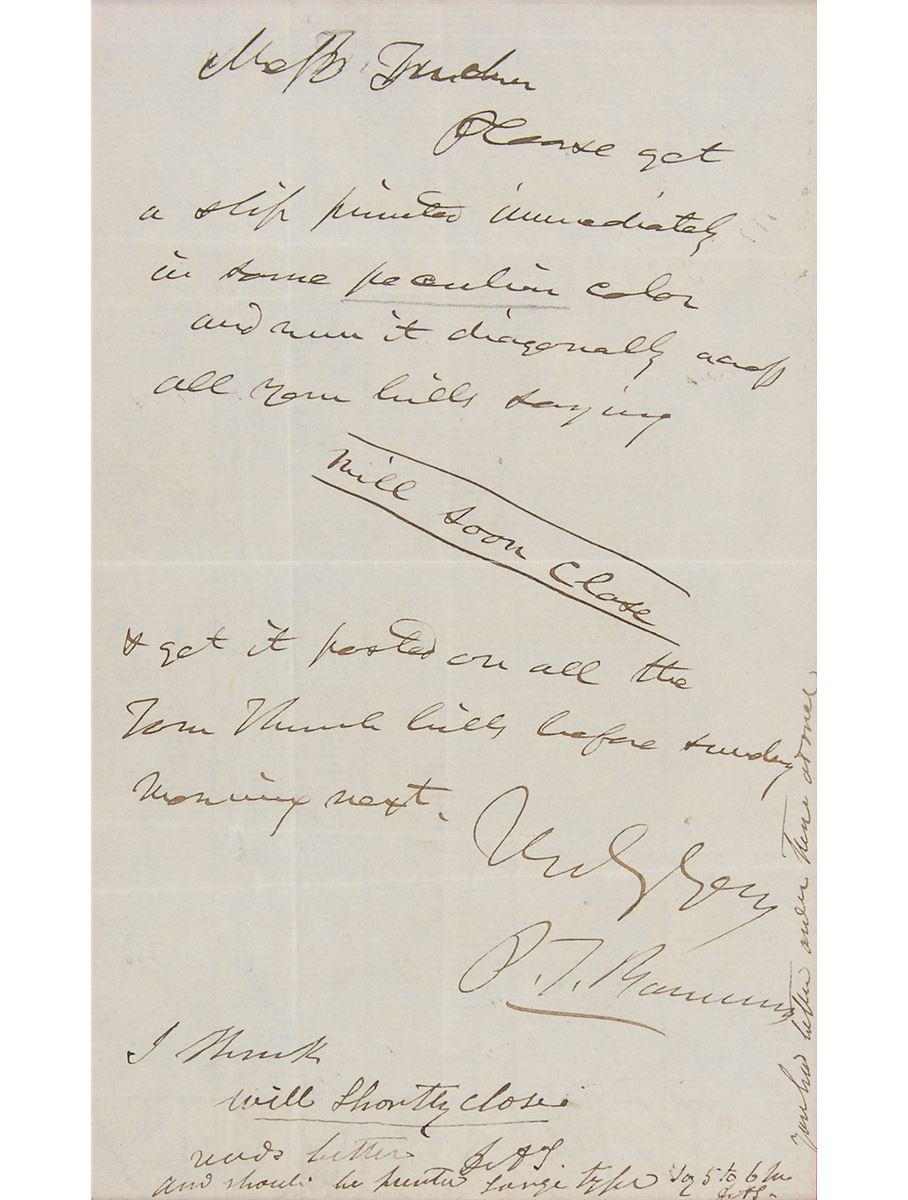 Messrs
Please get
a slip printed immediately
in some peculiar color
and run it diagonally across
all your bills saying
will soon close
& get it posted on all the
Tom Thumb bills before sunday
morning next.
Truly Yours
P. T. Barnum
I think
will Shortly close
reads better
and should be printed large type say 5 to 6 in
you had better order these at once